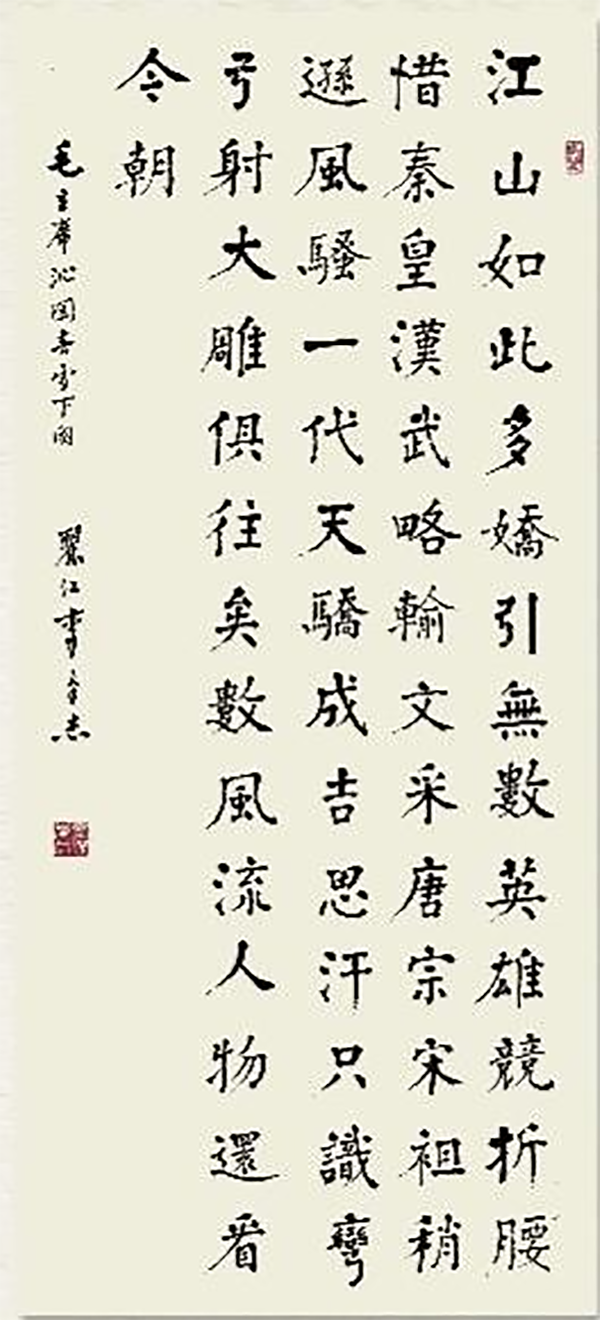 江山如此多嬌引無數英雄競折腰
惜秦皇漢武略輸文采唐宗宋祖稍
遜風騷一代天驕成吉思汗只識彎
弓射大雕俱往矣數風流人物還看
今朝
毛主席沁園春雪下闋